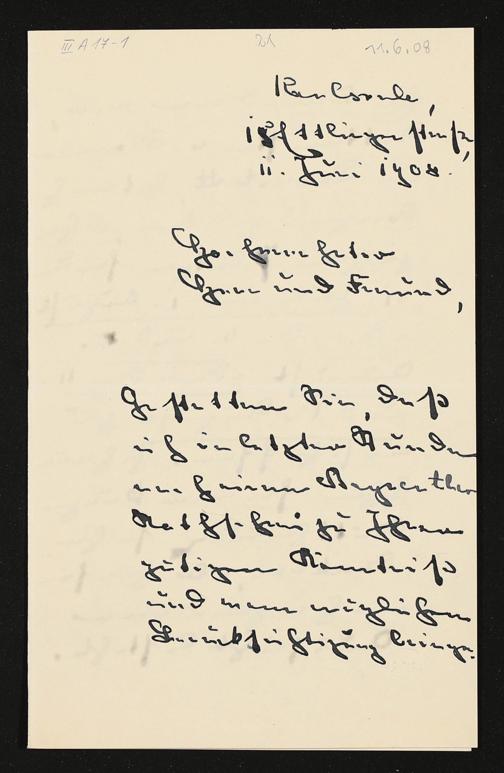 III A 17-1 21 11.6.08
Karlsruhe,
Ettlinger straße,
11. Juni 1908.
Hochverehrter
Herr und Freund,
Gestatten Sie, daß
ich in letzter Stunde
noch einen Bayreuther
Nothschrei zu Ihrer
gütigen Kenntniß
und wenn möglichen
Berücksichtigung bringe.